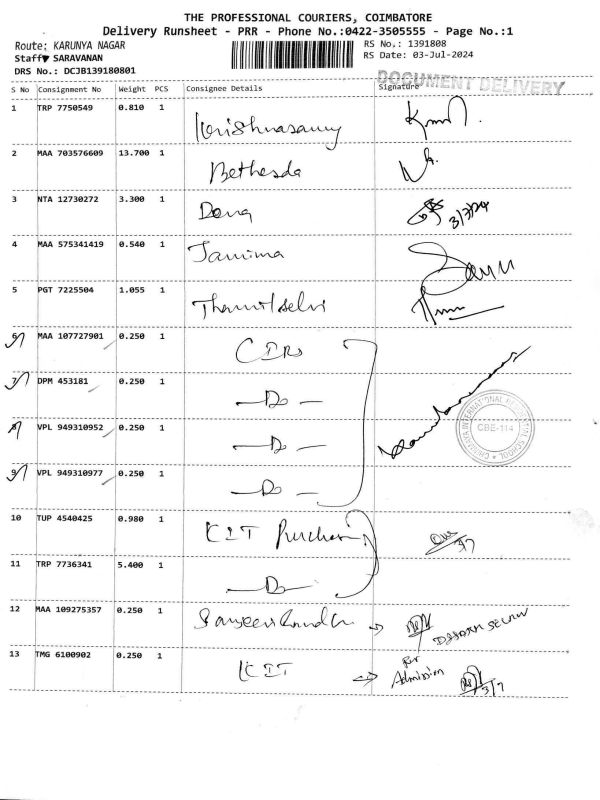 THE PROFESSIONAL COURIERS, COIMBATORE
Delivery Runsheet - PRR - Phone No.:0422-3505555 - Page No.:1
Route: KARUNYA NAGAR
RS No.: 1391808
Staff SARAVANAN
RS Date: 03-Jul-2024
DRS No.: DCJB139180801
DOCUMENT DELIVERY
S No Consignment No Weight PCS Consignee Details Signature
1 TRP 7750549 0.810 1 Krishnasamy
2 MAA 703576609 13.700 1 Bethesda
3 NTA 12730272 3.300 1 Dona 3/7/24
4 MAA 575341419 0.540 1 Tamima
5 PGT 7225504 1.055 1 Thamilselvi
6 MAA 107727901 0.250 1 CIRS
7 DPM 453181 0.250 1 - Do -
8 VPL 949310952 0.250 1 - Do -
CHINMAYA INTERNATIONAL RESIDENTIAL SCHOOL
CBE-114
9 VPL 949310977 0.250 1 - Do -
10 TUP 4540425 0.980 1 KIT 3/7
11 TRP 7736341 5.400 1 - Do -
12 MAA 109275357 0.250 1
13 TMG 6100902 0.250 1 KIT for Admission 3/7